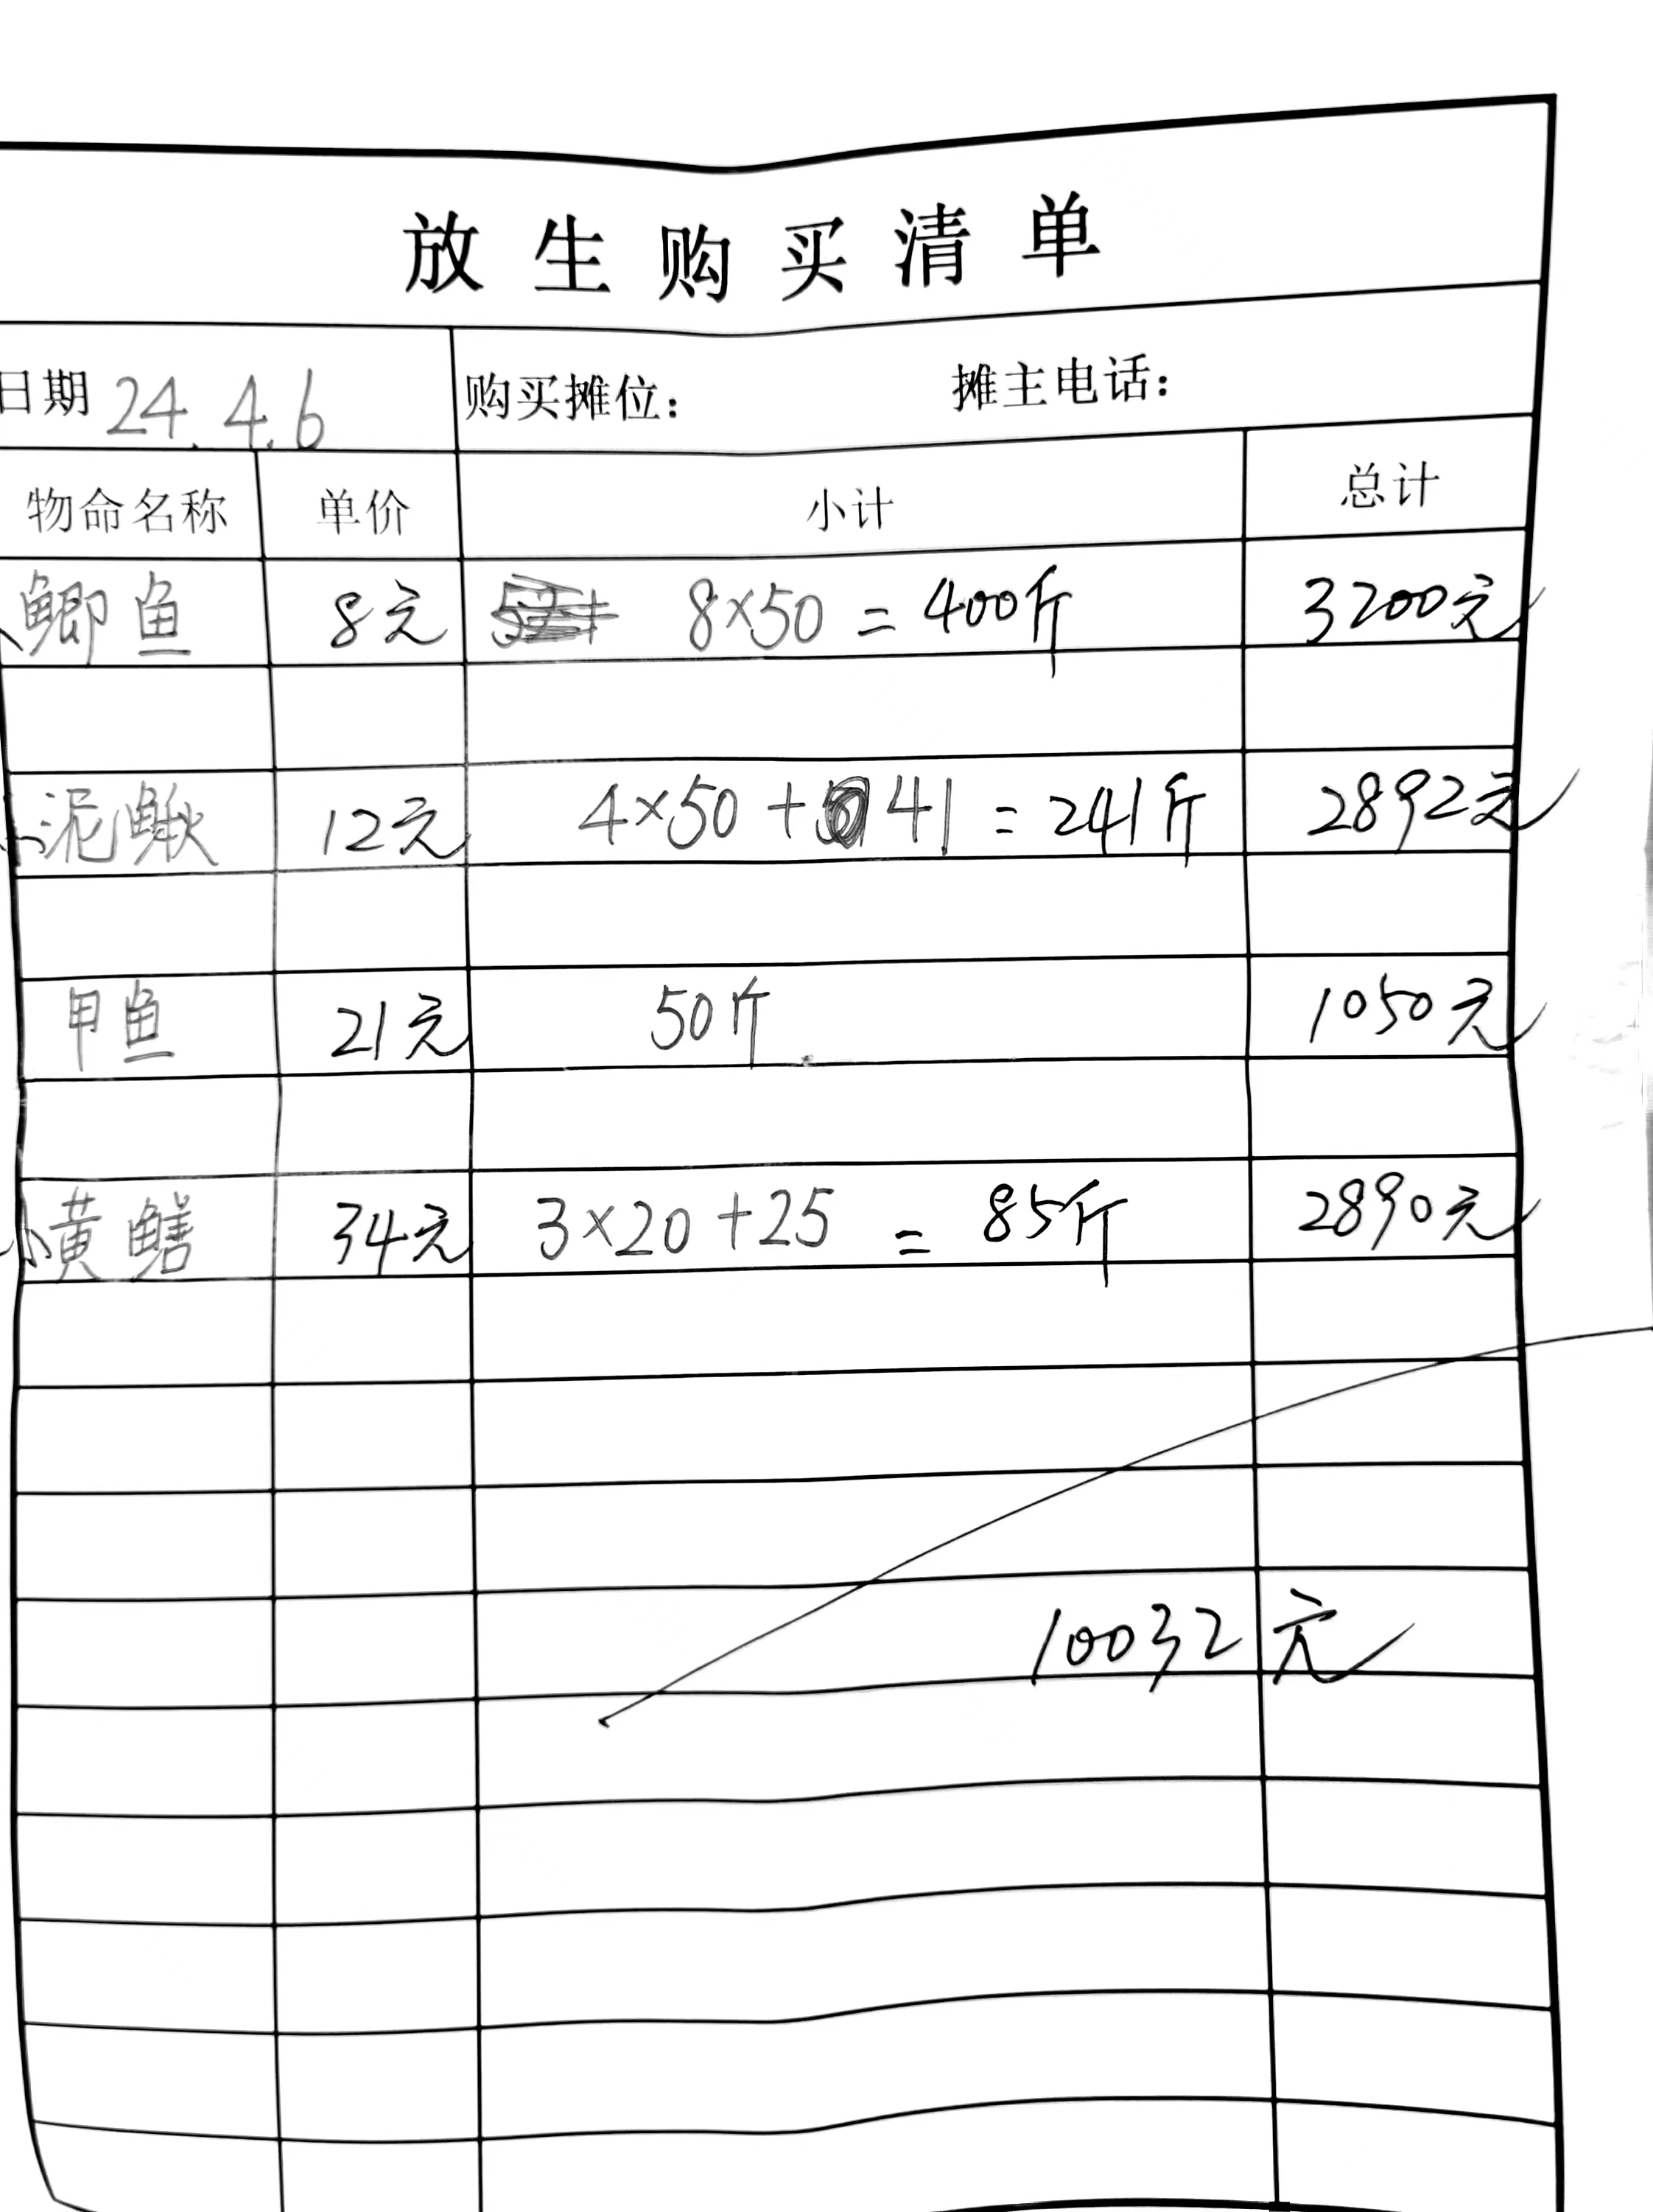 放生购买清单
日期 24.4.6 购买摊位： 摊主电话：
物命名称 单价 小计 总计
小鲫鱼 8元 8×50 = 400斤 3200元
小泥鳅 12元 4×50+41 = 241斤 2892元
甲鱼 21元 50斤 1050元
小黄鳝 34元 3×20+25 = 85斤 2890元
10032元